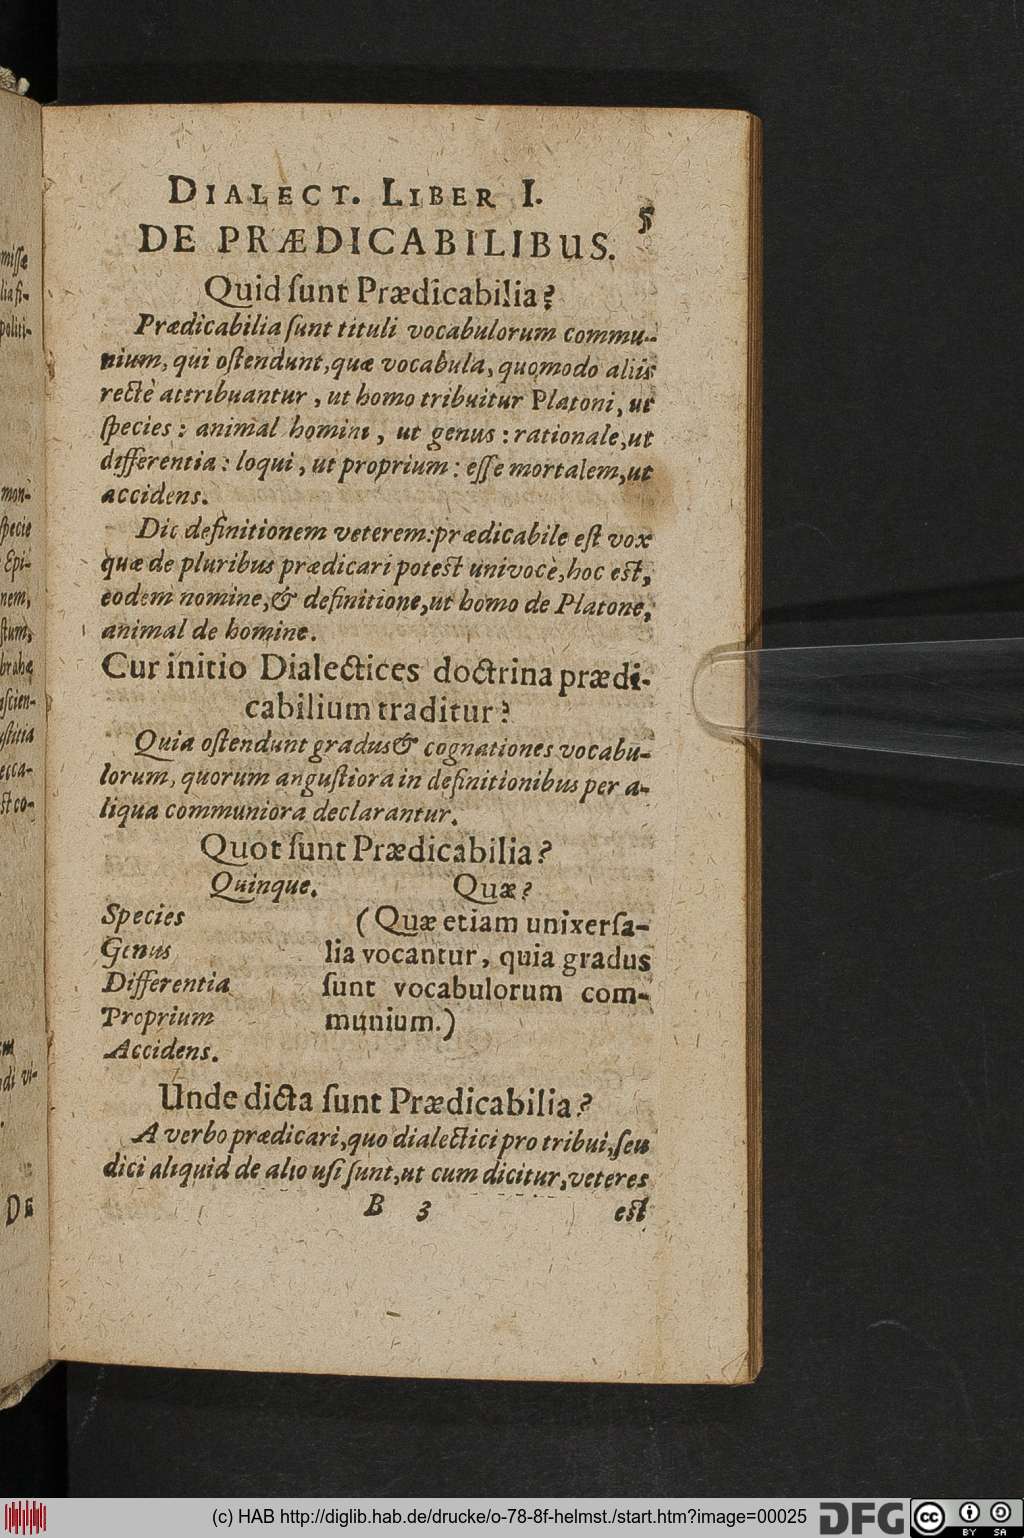 DIALECT. LIBER I.
5
DE PRÆDICABILIBUS.
Quid ſunt Prædicabilia?
Prædicabilia ſunt tituli vocabulorum commu-
nium, qui oſtendunt, quæ vocabula, quomodo aliis
rectè attribuantur, ut homo tribuitur Platoni, ut
ſpecies: animal homini, ut genus: rationale, ut
differentia: loqui, ut proprium: eſſe mortalem, ut
accidens.
Dic definitionem veterem: prædicabile eſt vox
quæ de pluribus prædicari poteſt univocè, hoc eſt,
eodem nomine, & definitione, ut homo de Platone,
animal de homine.
Cur initio Dialectices doctrina prædi-
cabilium traditur?
Quia oſtendunt gradus & cognationes vocabu-
lorum, quorum anguſtiora in definitionibus per a-
liqua communiora declarantur.
Quot ſunt Prædicabilia?
Quinque. Quæ?
Species
Genus
Differentia
Proprium
Accidens.
(Quæ etiam unixerſa-
lia vocantur, quia gradus
ſunt vocabulorum com-
munium.)
Unde dicta ſunt Prædicabilia?
A verbo prædicari, quo dialectici pro tribui, ſeu
dici aliquid de alio uſi ſunt, ut cum dicitur, veteres
B 3 eſt
miſſæ
lia ſi-
politi-
mon-
ſpecie
Epi-
nem,
ſtum,
brahæ
ſcien-
ſtitia
ecca-
ſt co-
di vi-
DE
(c) HAB http://diglib.hab.de/drucke/o-78-8f-helmst./start.htm?image=00025
DFG
cc
BY SA